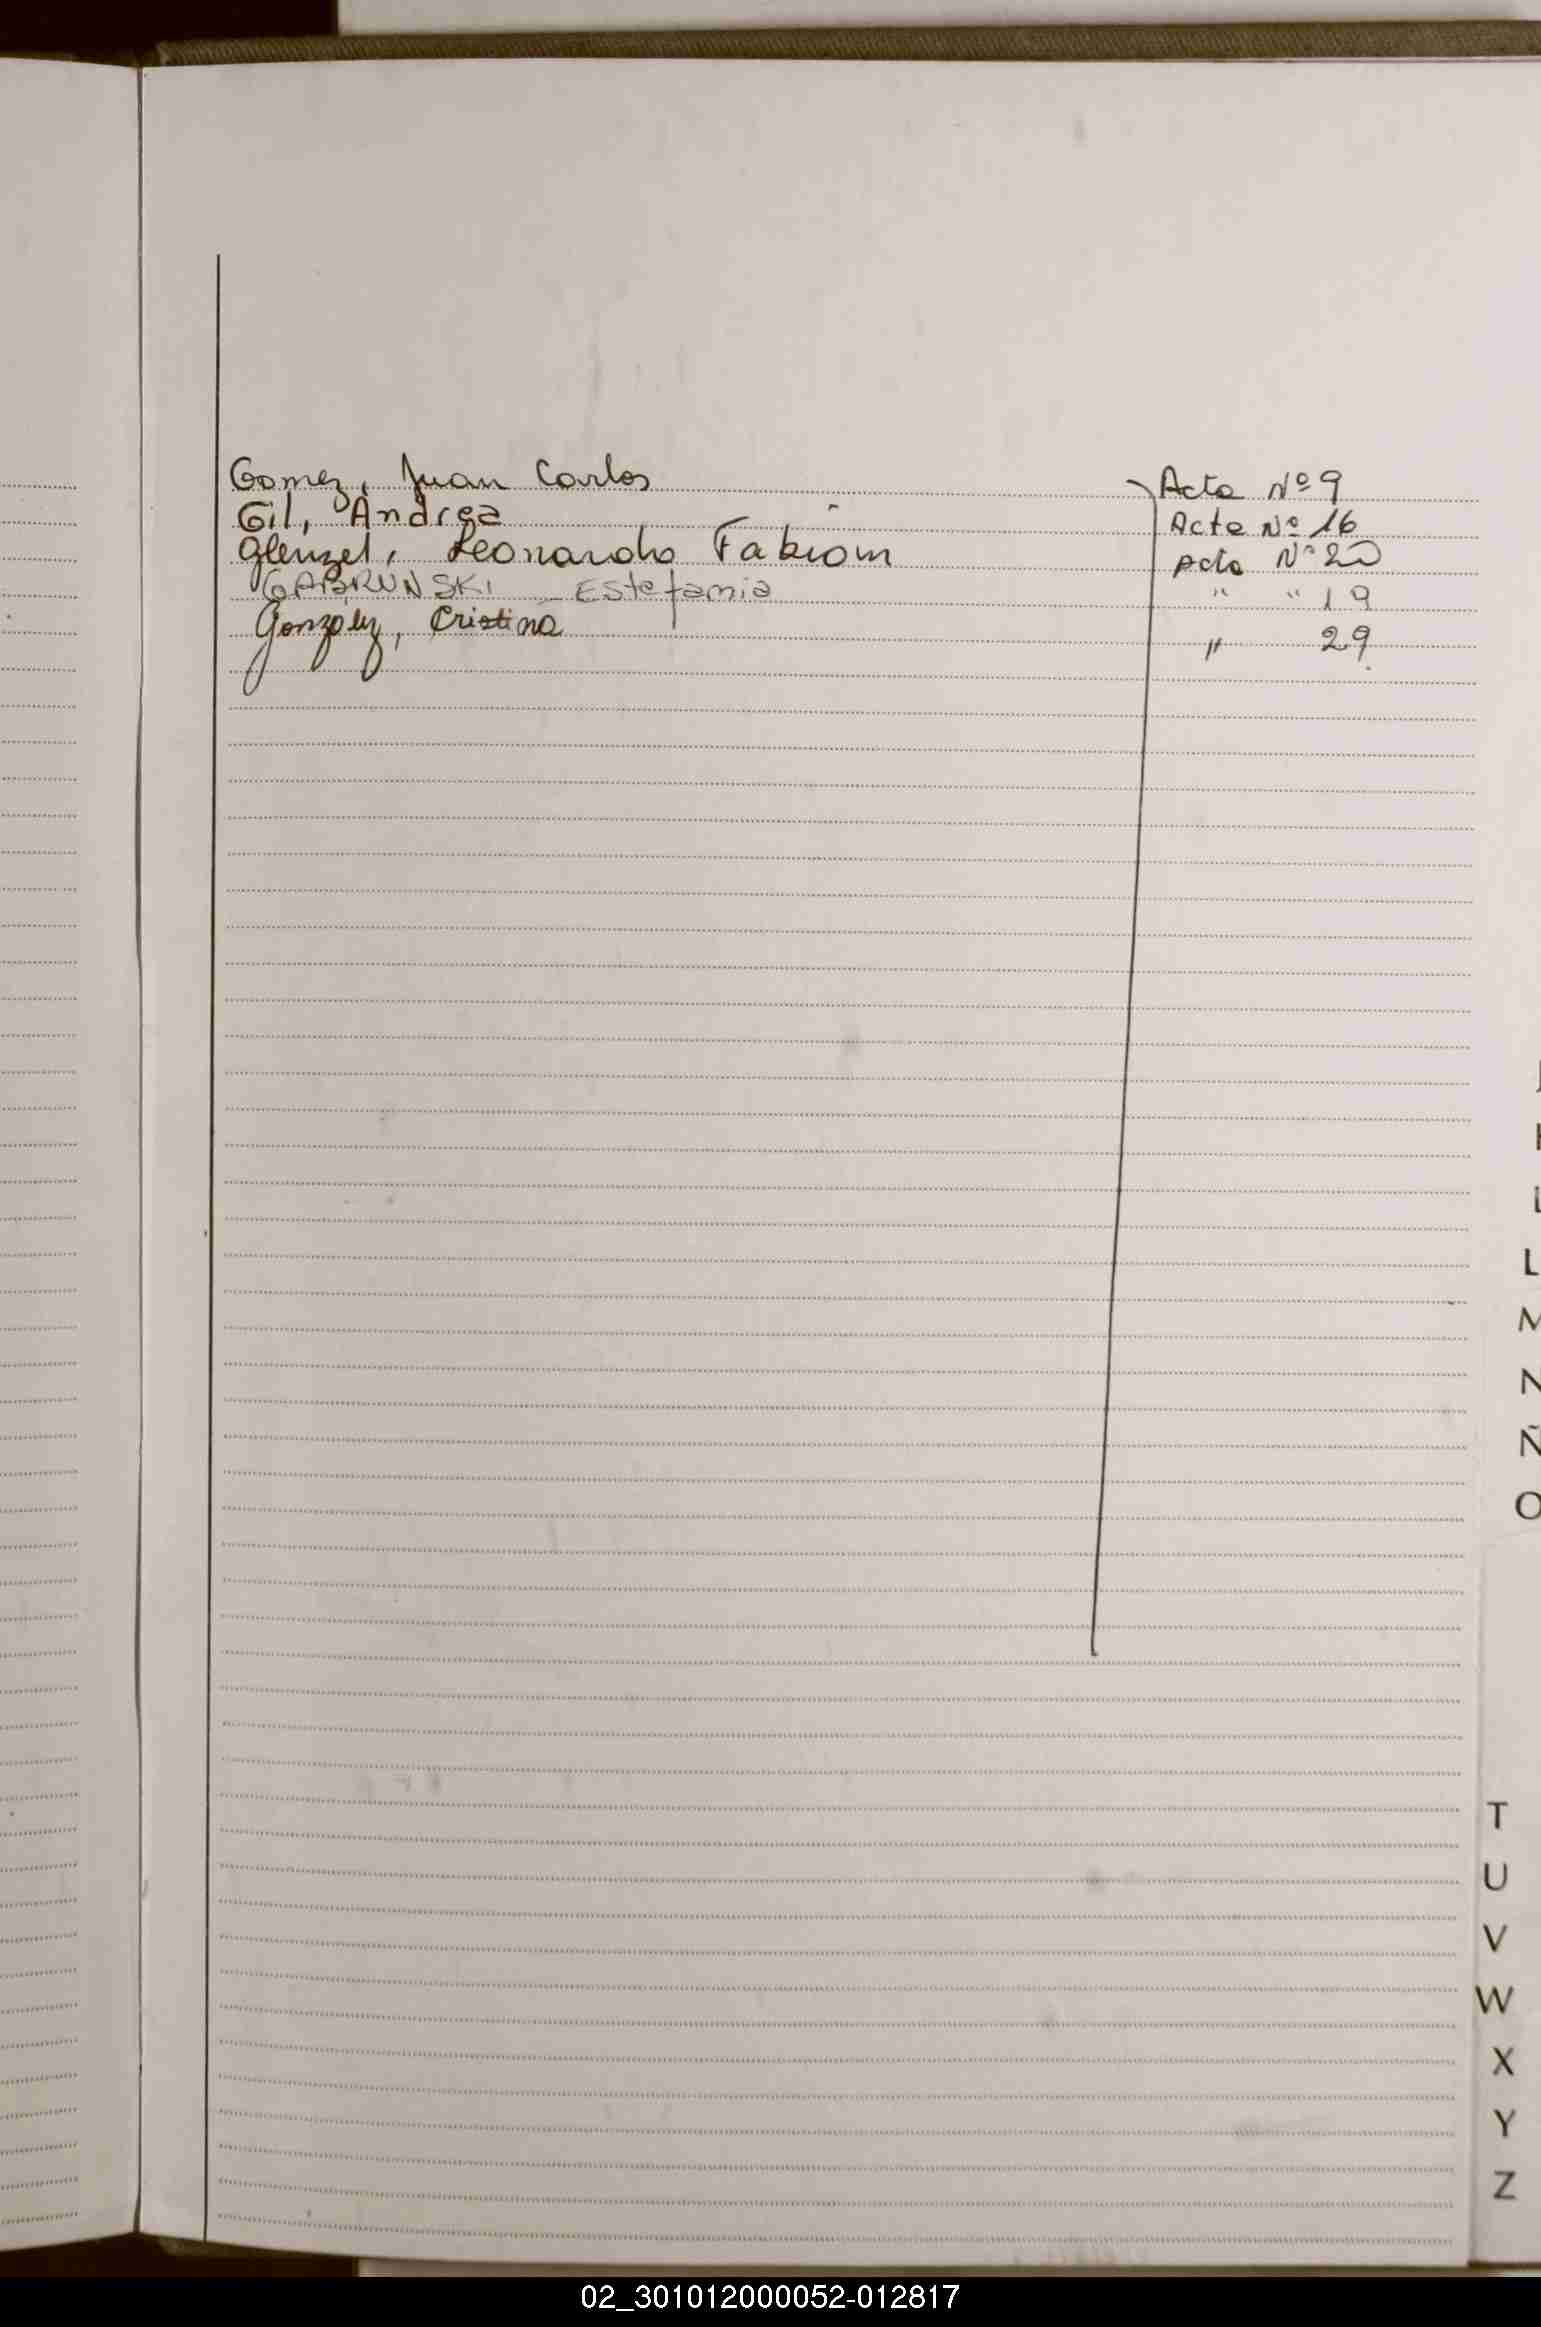 Gomez, Juan Carlos Acta Nº 9
Gil, Andrea Acta Nº 16
Glenzel, Leonardo Fabian Acta Nº 20
GABRUNSKI _ Estefania " " 19
Gonzalez, Cristina " 29
L
M
N
Ñ
O
T
U
V
W
X
Y
Z
02_301012000052-012817